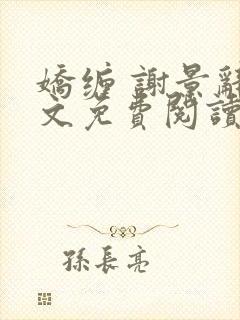 嬌缠 謝景辭
文免費閱讀
孫長亮